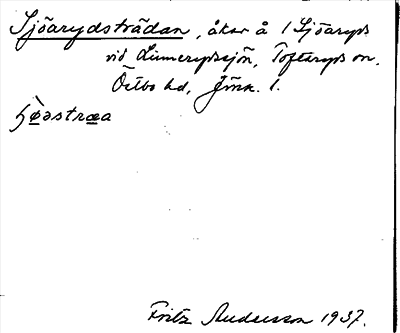 Sjöarydsträdan, åker å 1 Sjöaryd
vid Linnerydssjön, Tofteryds sn.
Östbo hd, Jönk. l.
Fritz Andersson 1937.